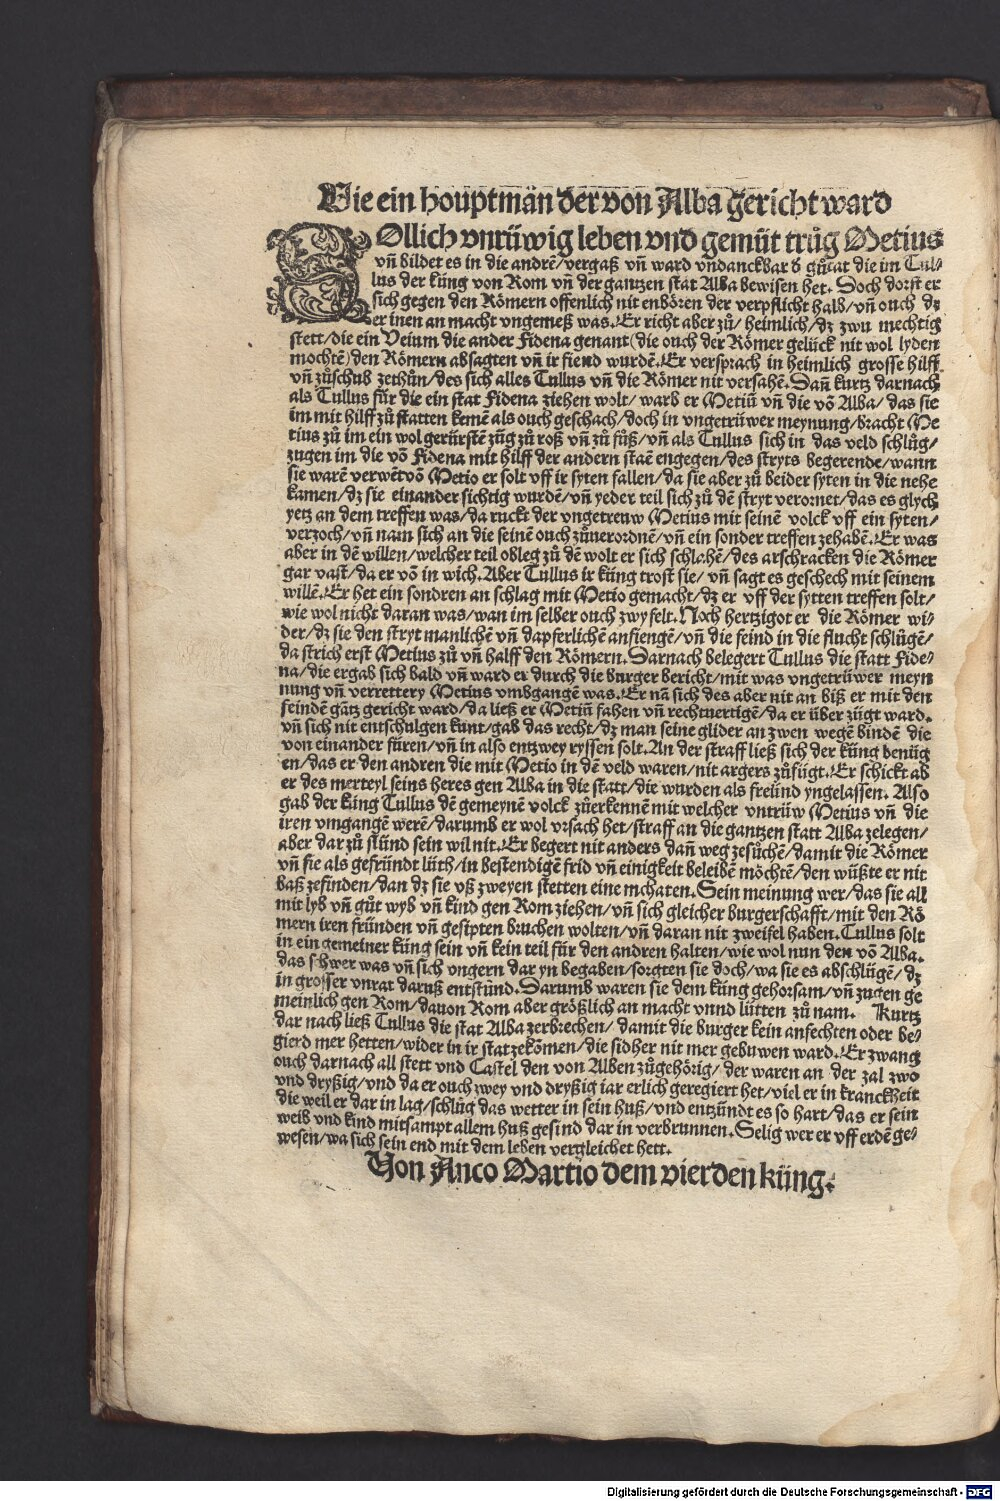 Wie ein houptmãn der von Alba gericht ward
SOllich vnrüwig leben vnd gemüt trůg Metius
vñ bildet es in die andrẽ/vergaß vñ ward vndanckbar d gůtat die im Tul⸗
lus der küng von Rom vñ der gantzen stat Alba bewisen het. Doch dorst er
sich gegen den Römern offenlich nit enbören der verpflicht halb/vñ ouch dz
er inen an macht vngemeß was. Er richt aber zů/ heimlich/dz zwu mechtig
stett/die ein Veium die ander Fidena genant (die ouch der Römer gelück nit wol lyden
mochtẽ) den Römern absagten vñ ir fiend wurdẽ. Er versprach in heimlich grosse hilff
vñ zůschub zethůn/des sich alles Tullus vñ die Römer nit versahẽ. Dañ kurtz darnach
als Tullus für die ein stat Fidena ziehen wolt/ warb er Metiũ vñ die võ Alba/ das sie
im mit hilff zů statten kemẽ als ouch geschach/doch in vngetrüwer meynung/bracht Me
tius zů im ein wol gerürstẽ züg zů roß vñ zů fůß/vñ als Tullus sich in das veld schlůg/
zugen im die võ Fidena mit hilff der andern staẽ engegen/des stryts begerende/wann
sie warẽ verwẽt võ Metio er solt vff ir syten fallen/da sie aber zů beider syten in die nehe
kamen/dz sie einander sichtig wurdẽ/vñ yeder teil sich zů dẽ stryt verornet/das es glych
yetz an dem treffen was/da ruckt der vngetreuw Metius mit seinẽ volck vff ein syten/
verzoch/vñ nam sich an die seinẽ ouch zůuerordnẽ/vñ ein sonder treffen zehabẽ. Er was
aber in dẽ willen/welcher teil obleg zů dẽ wolt er sich schlahẽ/des arschracken die Römer
gar vast/da er võ in wich. Aber Tullus ir küng trost sie/ vñ sagt es geschech mit seinem
willẽ. Er het ein sondren an schlag mit Metio gemacht/dz er vff der sytten treffen solt/
wie wol nicht daran was/wan im selber ouch zwyfelt. Noch hertzigot er die Römer wi⸗
der/dz sie den stryt manlichẽ vñ dapferlichẽ anfiengẽ/vñ die feind in die flucht schlůgẽ/
da strich erst Metius zů vñ halff den Römern. Darnach belegert Tullus die statt Fide⸗
na/die ergab sich bald vñ ward er durch die burger bericht/mit was vngetrüwer meyn
nung vñ verrettery Metius vmbgangẽ was. Er nã sich des aber nit an biß er mit den
feindẽ gãtz gericht ward/da ließ er Metiũ fahen vñ rechtuertigẽ/da er über zügt ward.
vñ sich nit entschulgen kunt/gab das recht/dz man seine glider an zwen wegẽ bindẽ die
von einander füren/vñ in also entzwey ryssen solt. An der straff ließ sich der küng benüg
en/das er den andren die mit Metio in dẽ veld waren/nit argers zůfügt. Er schickt ab
er des merteyl seins heres gen Alba in die statt/die wurden als freünd yngelassen. Also
gab der küng Tullus dẽ gemeynẽ volck zůerkennẽ mit welcher vntrüw Metius vñ die
iren vmgangẽ werẽ/darumb er wol vrsach het/straff an die gantzen statt Alba zelegen/
aber dar zů stünd sein wil nit. Er begert nit anders dañ weg zesůchẽ/damit die Römer
vñ sie als gefründt lüth/in bestendigẽ frid vñ einigkeit beleibẽ möchtẽ/den wüßte er nit
baß zefinden/dan dz sie vß zweyen stetten eine mchaten. Sein meinung wer/das sie all
mit lyb vñ gůt wyb vñ kind gen Rom ziehen/vñ sich gleicher burgerschafft/mit den Rö
mern iren fründen vñ gesipten bruchen wolten/vñ daran nit zweifel haben. Tullus solt
in ein gemeiner küng sein vñ kein teil für den andren halten/wie wol nun den võ Alba.
das schwer was vñ sich vngern dar yn begaben/sorgten sie doch/wa sie es abschlügẽ/dz
in grosser vnrat daruß entstünd. Darumb waren sie dem küng gehorsam/vñ zugen ge
meinlich gen Rom/dauon Rom aber größlich an macht vnnd lütten zů nam. Kurtz
dar nach ließ Tullus die stat Alba zerbrechen/ damit die burger kein anfechten oder be⸗
gierd mer hetten/wider in ir stat zekõmen/die sidher nit mer gebuwen ward. Er zwang
ouch darnach all stett vnd Castel den von Alben zůgehörig/ der waren an der zal zwo
vnd dryßig/vnd da er ouch zwey vnd dryßig iar erlich geregiert het/viel er in kranckheit
die weil er dar in lag/schlůg das wetter in sein huß/vnd entzündt es so hart/das er sein
weib vnd kind mitsampt allem huß gesind dar in verbrunnen. Selig wer er vff erdẽ ge⸗
wesen/wa sich sein end mit dem leben vergleichet hett.
Von Anco Martio dem vierden küng.
Digitalisierung gefördert durch die Deutsche Forschungsgemeinschaft - DFG